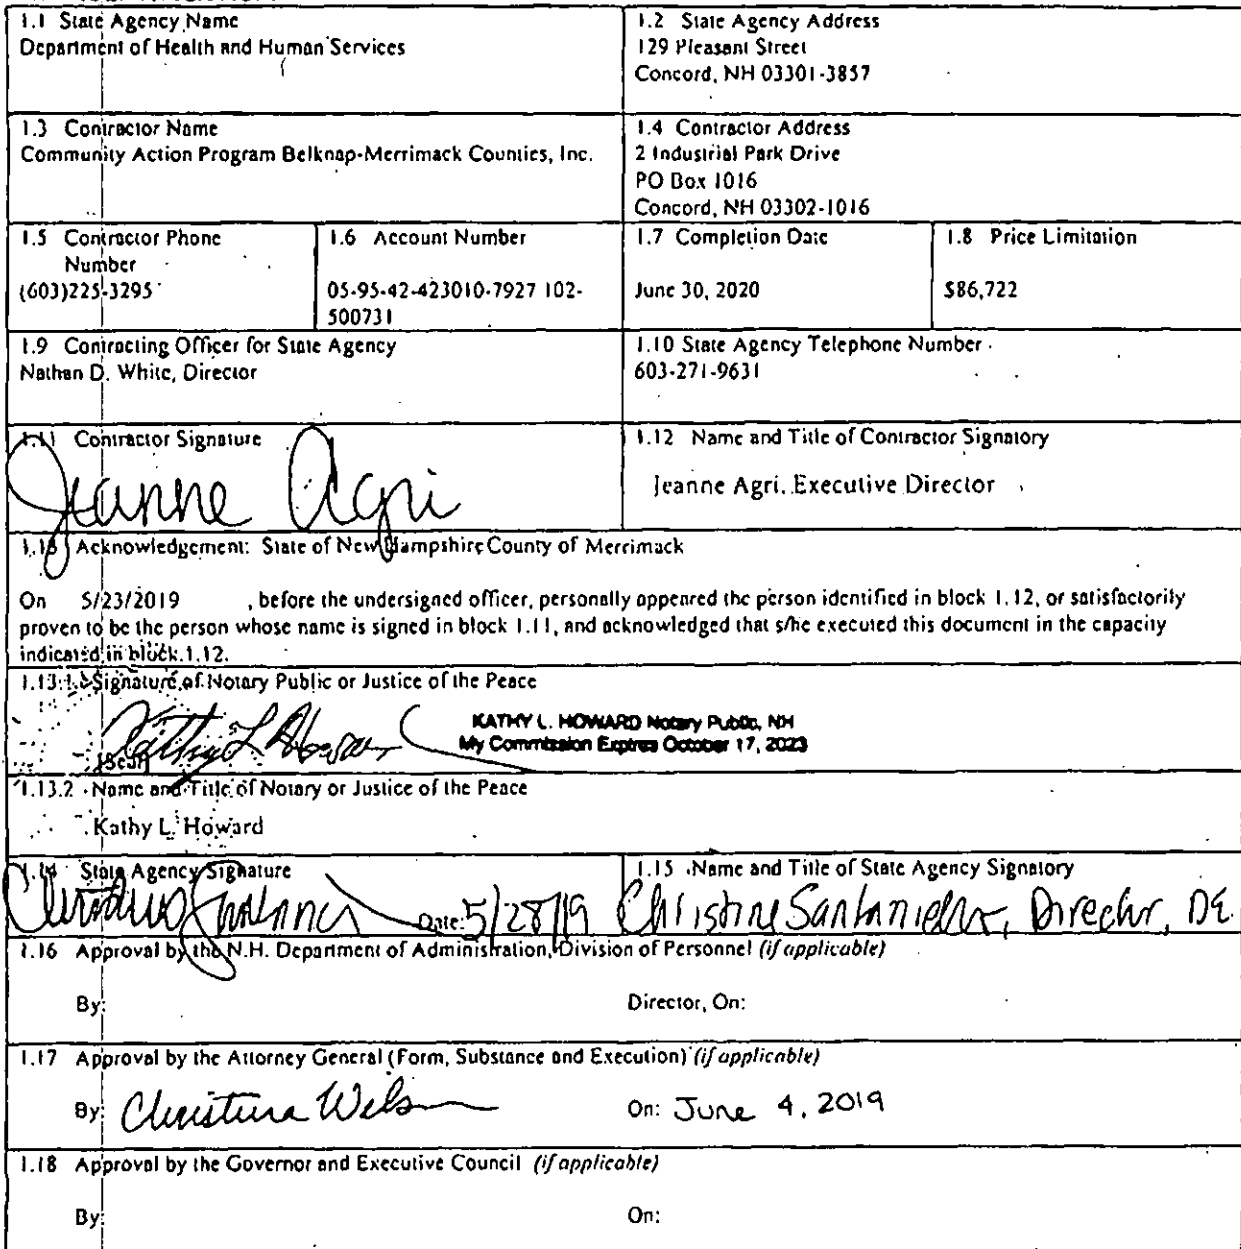 1.1 State Agency Name
Department of Health and Human Services
1.2 State Agency Address
129 Pleasant Street
Concord, NH 03301-3857
1.3 Contractor Name
Community Action Program Belknap-Merrimack Counties, Inc.
1.4 Contractor Address
2 Industrial Park Drive
PO Box 1016
Concord, NH 03302-1016
1.5 Contractor Phone
Number
(603)225-3295
1.6 Account Number
05-95-42-423010-7927 102-
500731
1.7 Completion Date
June 30, 2020
1.8 Price Limitation
$86,722
1.9 Contracting Officer for State Agency
Nathan D. White, Director
1.10 State Agency Telephone Number
603-271-9631
1.11 Contractor Signature
Jeanne Agri
1.12 Name and Title of Contractor Signatory
Jeanne Agri, Executive Director
1.13 Acknowledgement: State of New Hampshire County of Merrimack
On 5/23/2019 , before the undersigned officer, personally appeared the person identified in block 1.12, or satisfactorily
proven to be the person whose name is signed in block 1.11, and acknowledged that s/he executed this document in the capacity
indicated in block 1.12.
1.13.1 Signature of Notary Public or Justice of the Peace
Kathy L Howard
KATHY L. HOWARD Notary Public, NH
My Commission Expires October 17, 2023
[Seal]
1.13.2 Name and Title of Notary or Justice of the Peace
Kathy L. Howard
1.14 State Agency Signature
Date: 5/28/19
1.15 Name and Title of State Agency Signatory
Christine Santaniello, Director, DE
1.16 Approval by the N.H. Department of Administration, Division of Personnel (if applicable)
By:
Director, On:
1.17 Approval by the Attorney General (Form, Substance and Execution) (if applicable)
By: Christina Wilson
On: June 4, 2019
1.18 Approval by the Governor and Executive Council (if applicable)
By:
On: